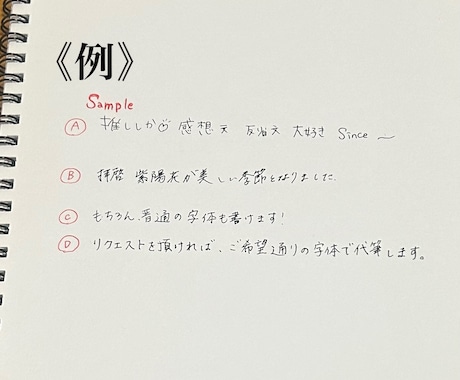 《例》
Sample
A 推ししか♡ 感想文 反省文 大好き Since ～
B 拝啓 紫陽花が美しい季節となりました。
C もちろん、普通の字体も書けます!
D リクエストを頂ければ、ご希望通りの字体で代筆します。